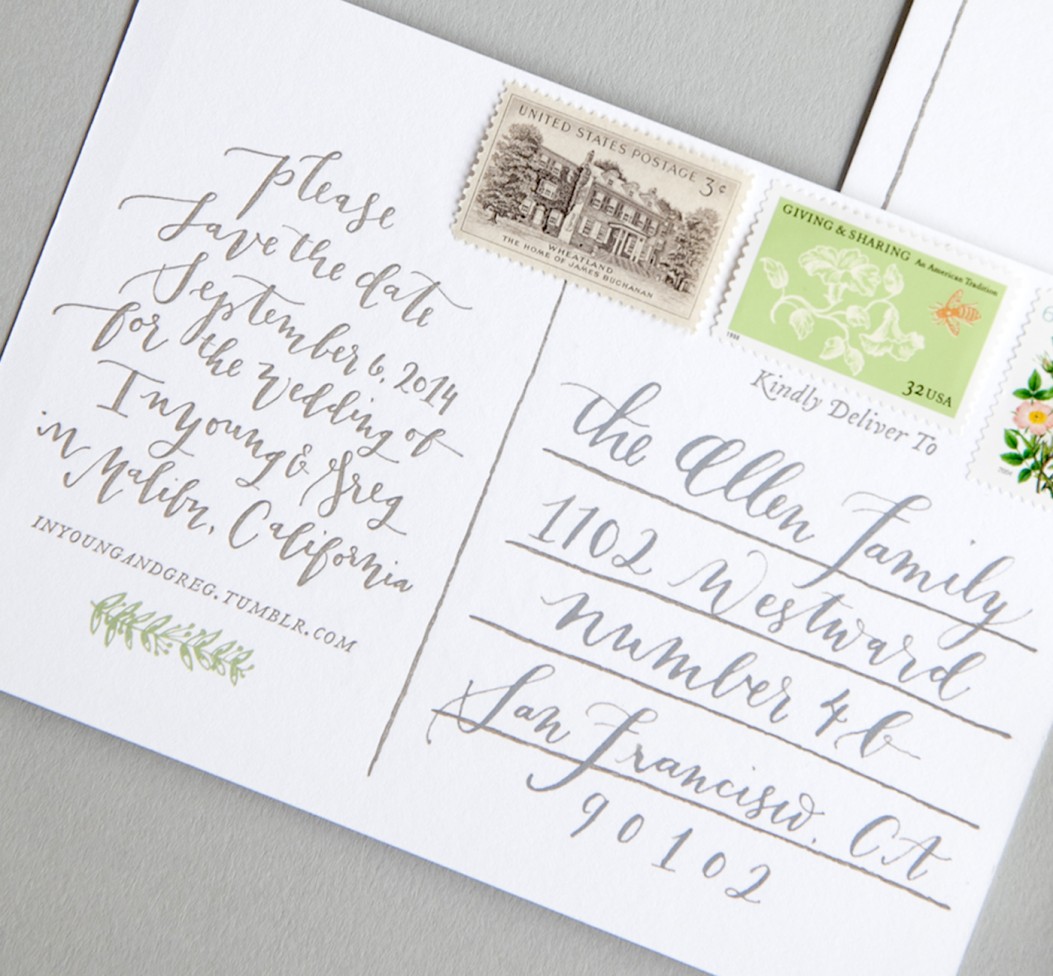 please
Save the date
September 6, 2014
for the wedding of
Inyoung & Greg
in Malibu, California
INYOUNGANDGREG.TUMBLR.COM
UNITED STATES POSTAGE 3¢
WHEATLAND
THE HOME OF JAMES BUCHANAN
GIVING & SHARING An American Tradition
1998
32 USA
Kindly Deliver To
the Allen Family
1102 Westward
number 4b
San Francisco, CA
90102